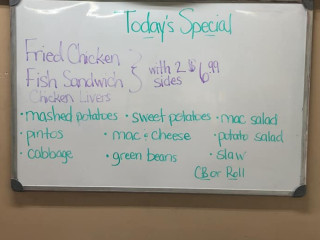 Today's Special
Fried Chicken
Fish Sandwich
Chicken Livers
with 2 sides
$6.99
• mashed potatoes • sweet potatoes • mac salad
• pintos • mac & cheese • potato salad
• cabbage • green beans • slaw
CB or Roll